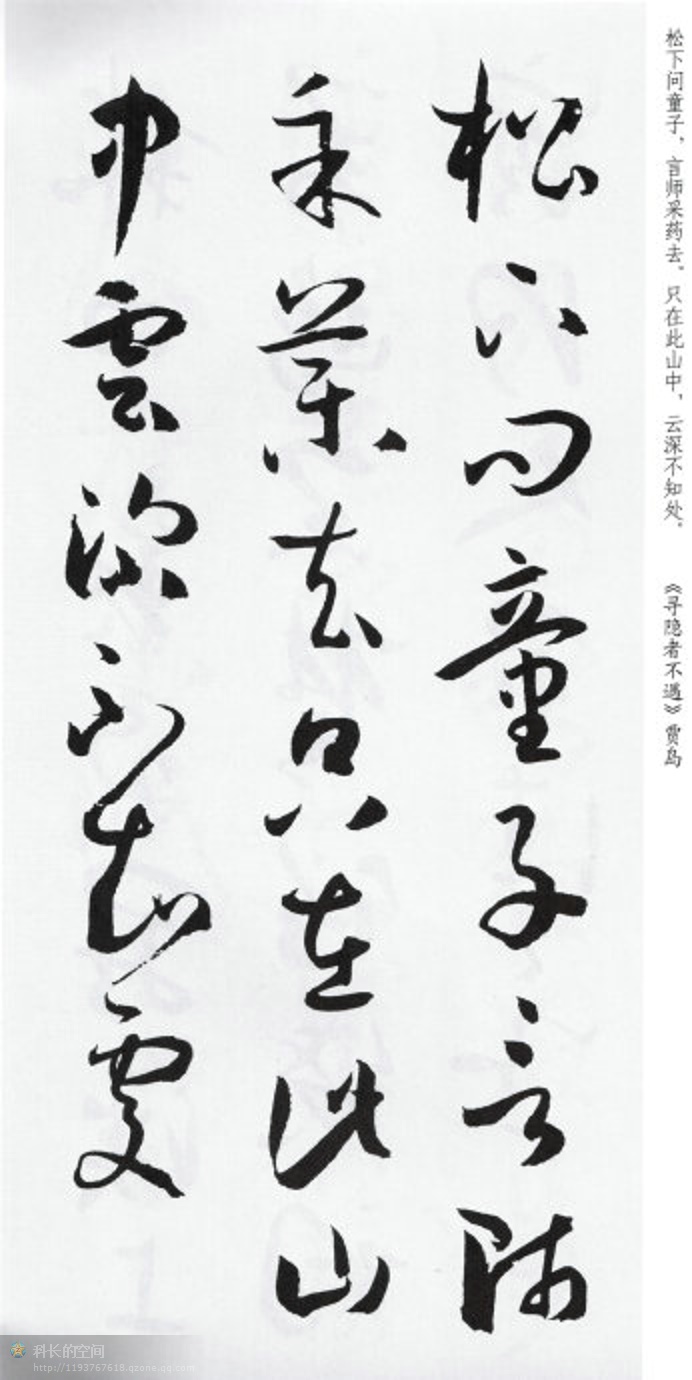 松下问童子，言师采药去。只在此山中，云深不知处。 《寻隐者不遇》贾岛
松下问童子言师
采药去只在此山
中雲深不知處
科长的空间
http://1193767618.qzone.qq.com